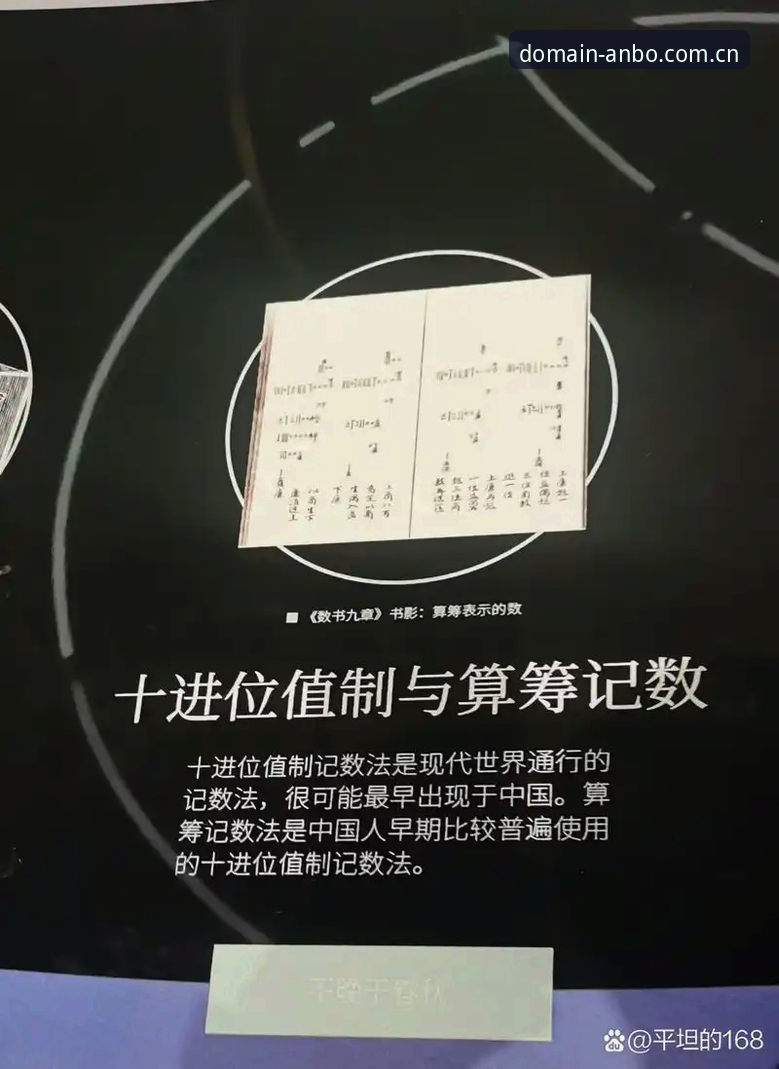 domain-anbo.com.cn
《数书九章》书影：算筹表示的数
十进位值制与算筹记数
十进位值制记数法是现代世界通行的
记数法，很可能最早出现于中国。算
筹记数法是中国人早期比较普遍使用
的十进位值制记数法。
不晚于春秋
@平坦的168